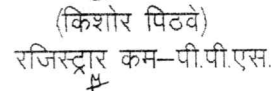 (किशोर पिठवे)
रजिस्ट्रार कम–पी.पी.एस.